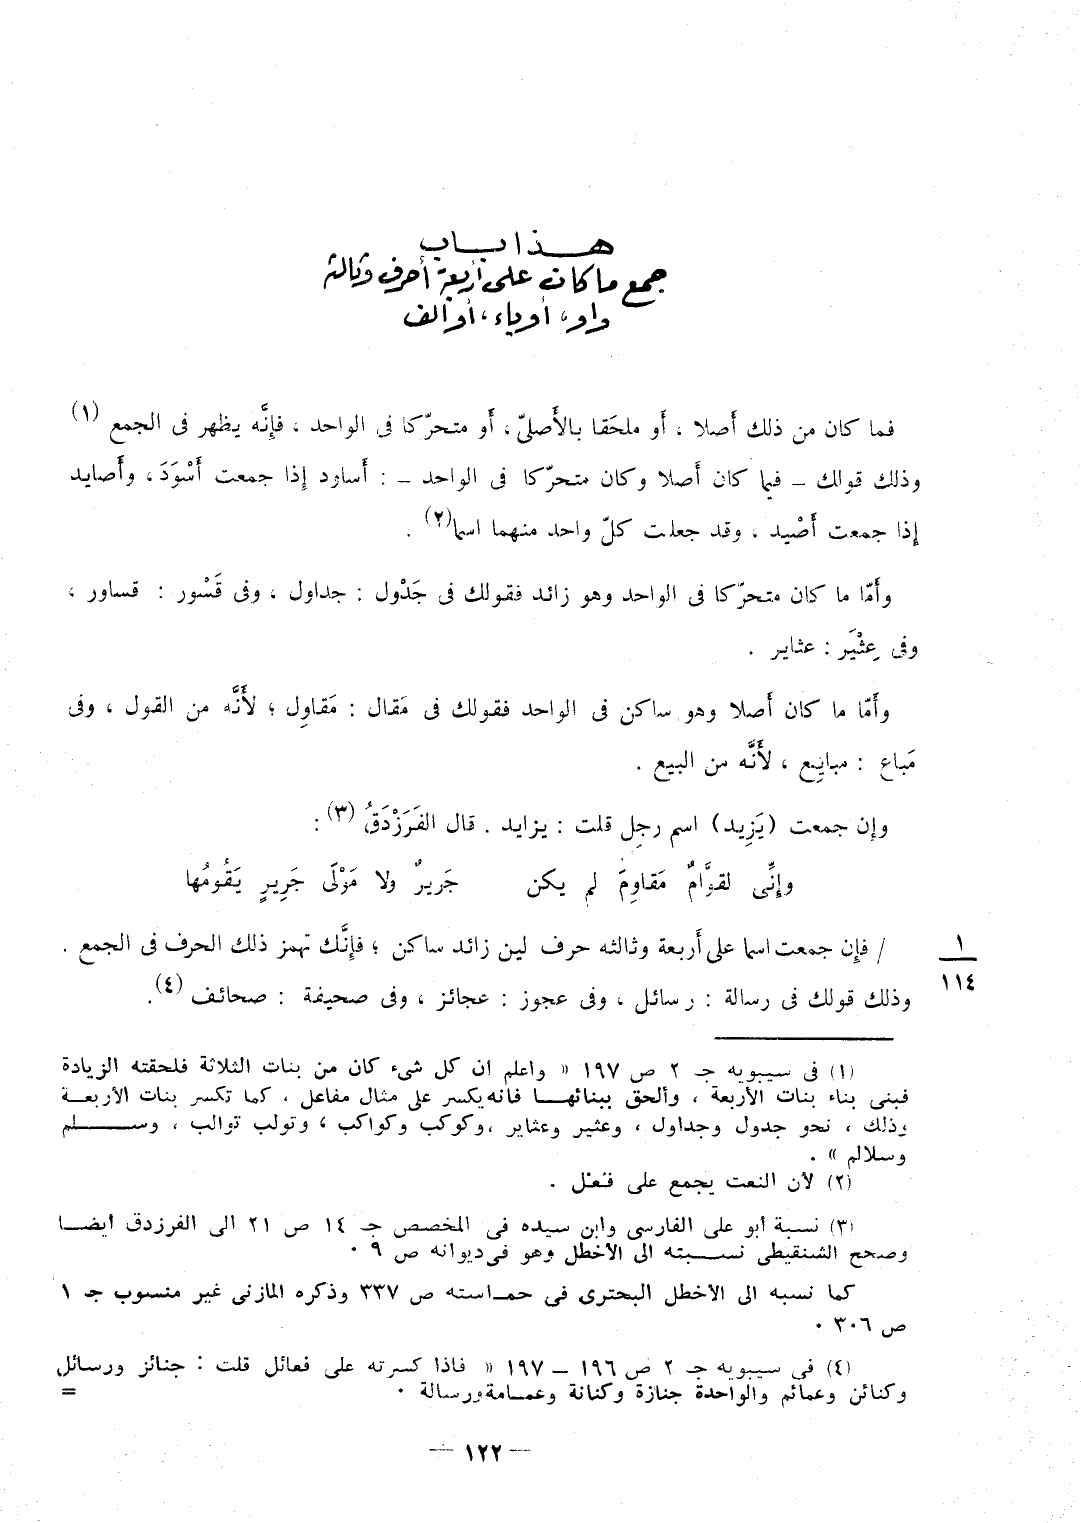 هـذا باب
جمع ما كان على أربعة أحرف وثالثه
واو، أو ياء، أو ألف
فما كان من ذلك أَصلا ، أَو ملحَقا بالأَصليّ، أَو متحرّكا فى الواحد ، فإِنَّه يظهر فى الجمع (١)
وذلك قولك – فيما كان أَصلا وكان متحرّكا فى الواحد – : أَساود إِذا جمعت أَسْوَدَ، وأَصايد
إِذا جمعت أَصْيد ، وقد جعلت كلّ واحد منهما اسما(٢) .
وأَمّا ما كان متحرّكا فى الواحد وهو زائد فقولك فى جَدْول : جداول ، وفى قَسْوَر : قساور ،
وفى عِثْيَر : عثاير .
وأَمّا ما كان أَصلا وهو ساكن فى الواحد فقولك فى مَقال : مَقاوِل ؛ لأَنَّه من القول ، وفى
مَباع : مبايِع ، لأَنَّه من البيع .
وإِن جمعت (يَزِيد) اسم رجلٍ قلت : يزايد . قال الفَرَزْدَقُ (٣) :
وإِنِّى لقوَّامٌ مَقاوِمَ لم يكن جَريرٌ ولا مَوْلَى جَرِيرٍ يَقُومُها
/ فإِن جمعت اسما على أَربعة وثالثه حرف لين زائد ساكن ؛ فإِنَّك تهمز ذلك الحرف فى الجمع .
١
١١٤
وذلك قولك فى رسالة : رسائل ، وفى عجوز : عجائز ، وفى صحيفة : صحائف (٤).
(١) فى سيبويه جـ ٢ ص ١٩٧ « واعلم ان كل شىء كان من بنات الثلاثة فلحقته الزيادة
فبنى بناء بنات الأربعة ، وألحق ببنائهـا فانه يكسر على مثال مفاعل ، كما تكسر بنات الأربعـة
وذلك ، نحو جدول وجداول ، وعثير وعثاير ،وكوكب وكواكب ، وتولب توالب ، وسـلم
وسلالم » .
(٢) لأن النعت يجمع على فُعْل .
(٣) نسبة أبو على الفارسى وابن سيده فى المخصص جـ ١٤ ص ٢١ الى الفرزدق أيضـا
وصحح الشنقيطى نسـبته الى الأخطل وهو فى ديوانه ص ٩ ٠
كما نسبه الى الاخطل البحترى فى حمـاسته ص ٣٣٧ وذكره المازنى غير منسوب جـ ١
ص ٣٠٦ ٠
(٤) فى سيبويه جـ ٢ ص ١٩٦ – ١٩٧ « فاذا كسرته على فعائل قلت : جنائز ورسائل
وكنائن وعمائم والواحدة جنازة وكنانة وعمـامة ورسالة ٠ =
— ١٢٢ —